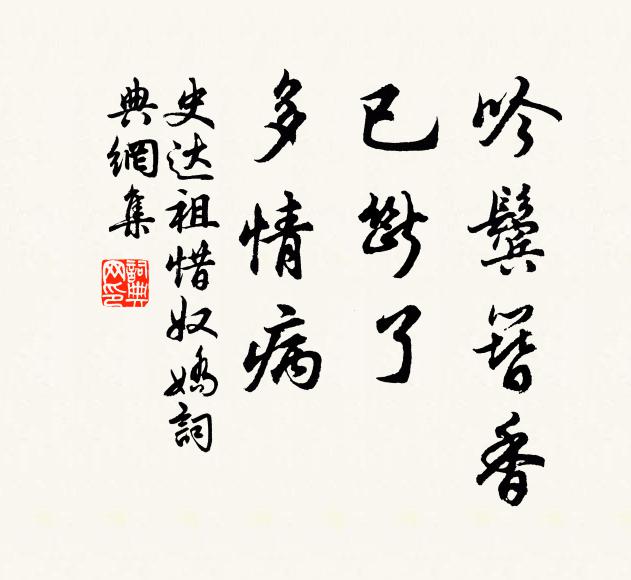 吟鬢簪香
已斷了
多情病
史达祖惜奴嬌詞
典網集
詞典網印